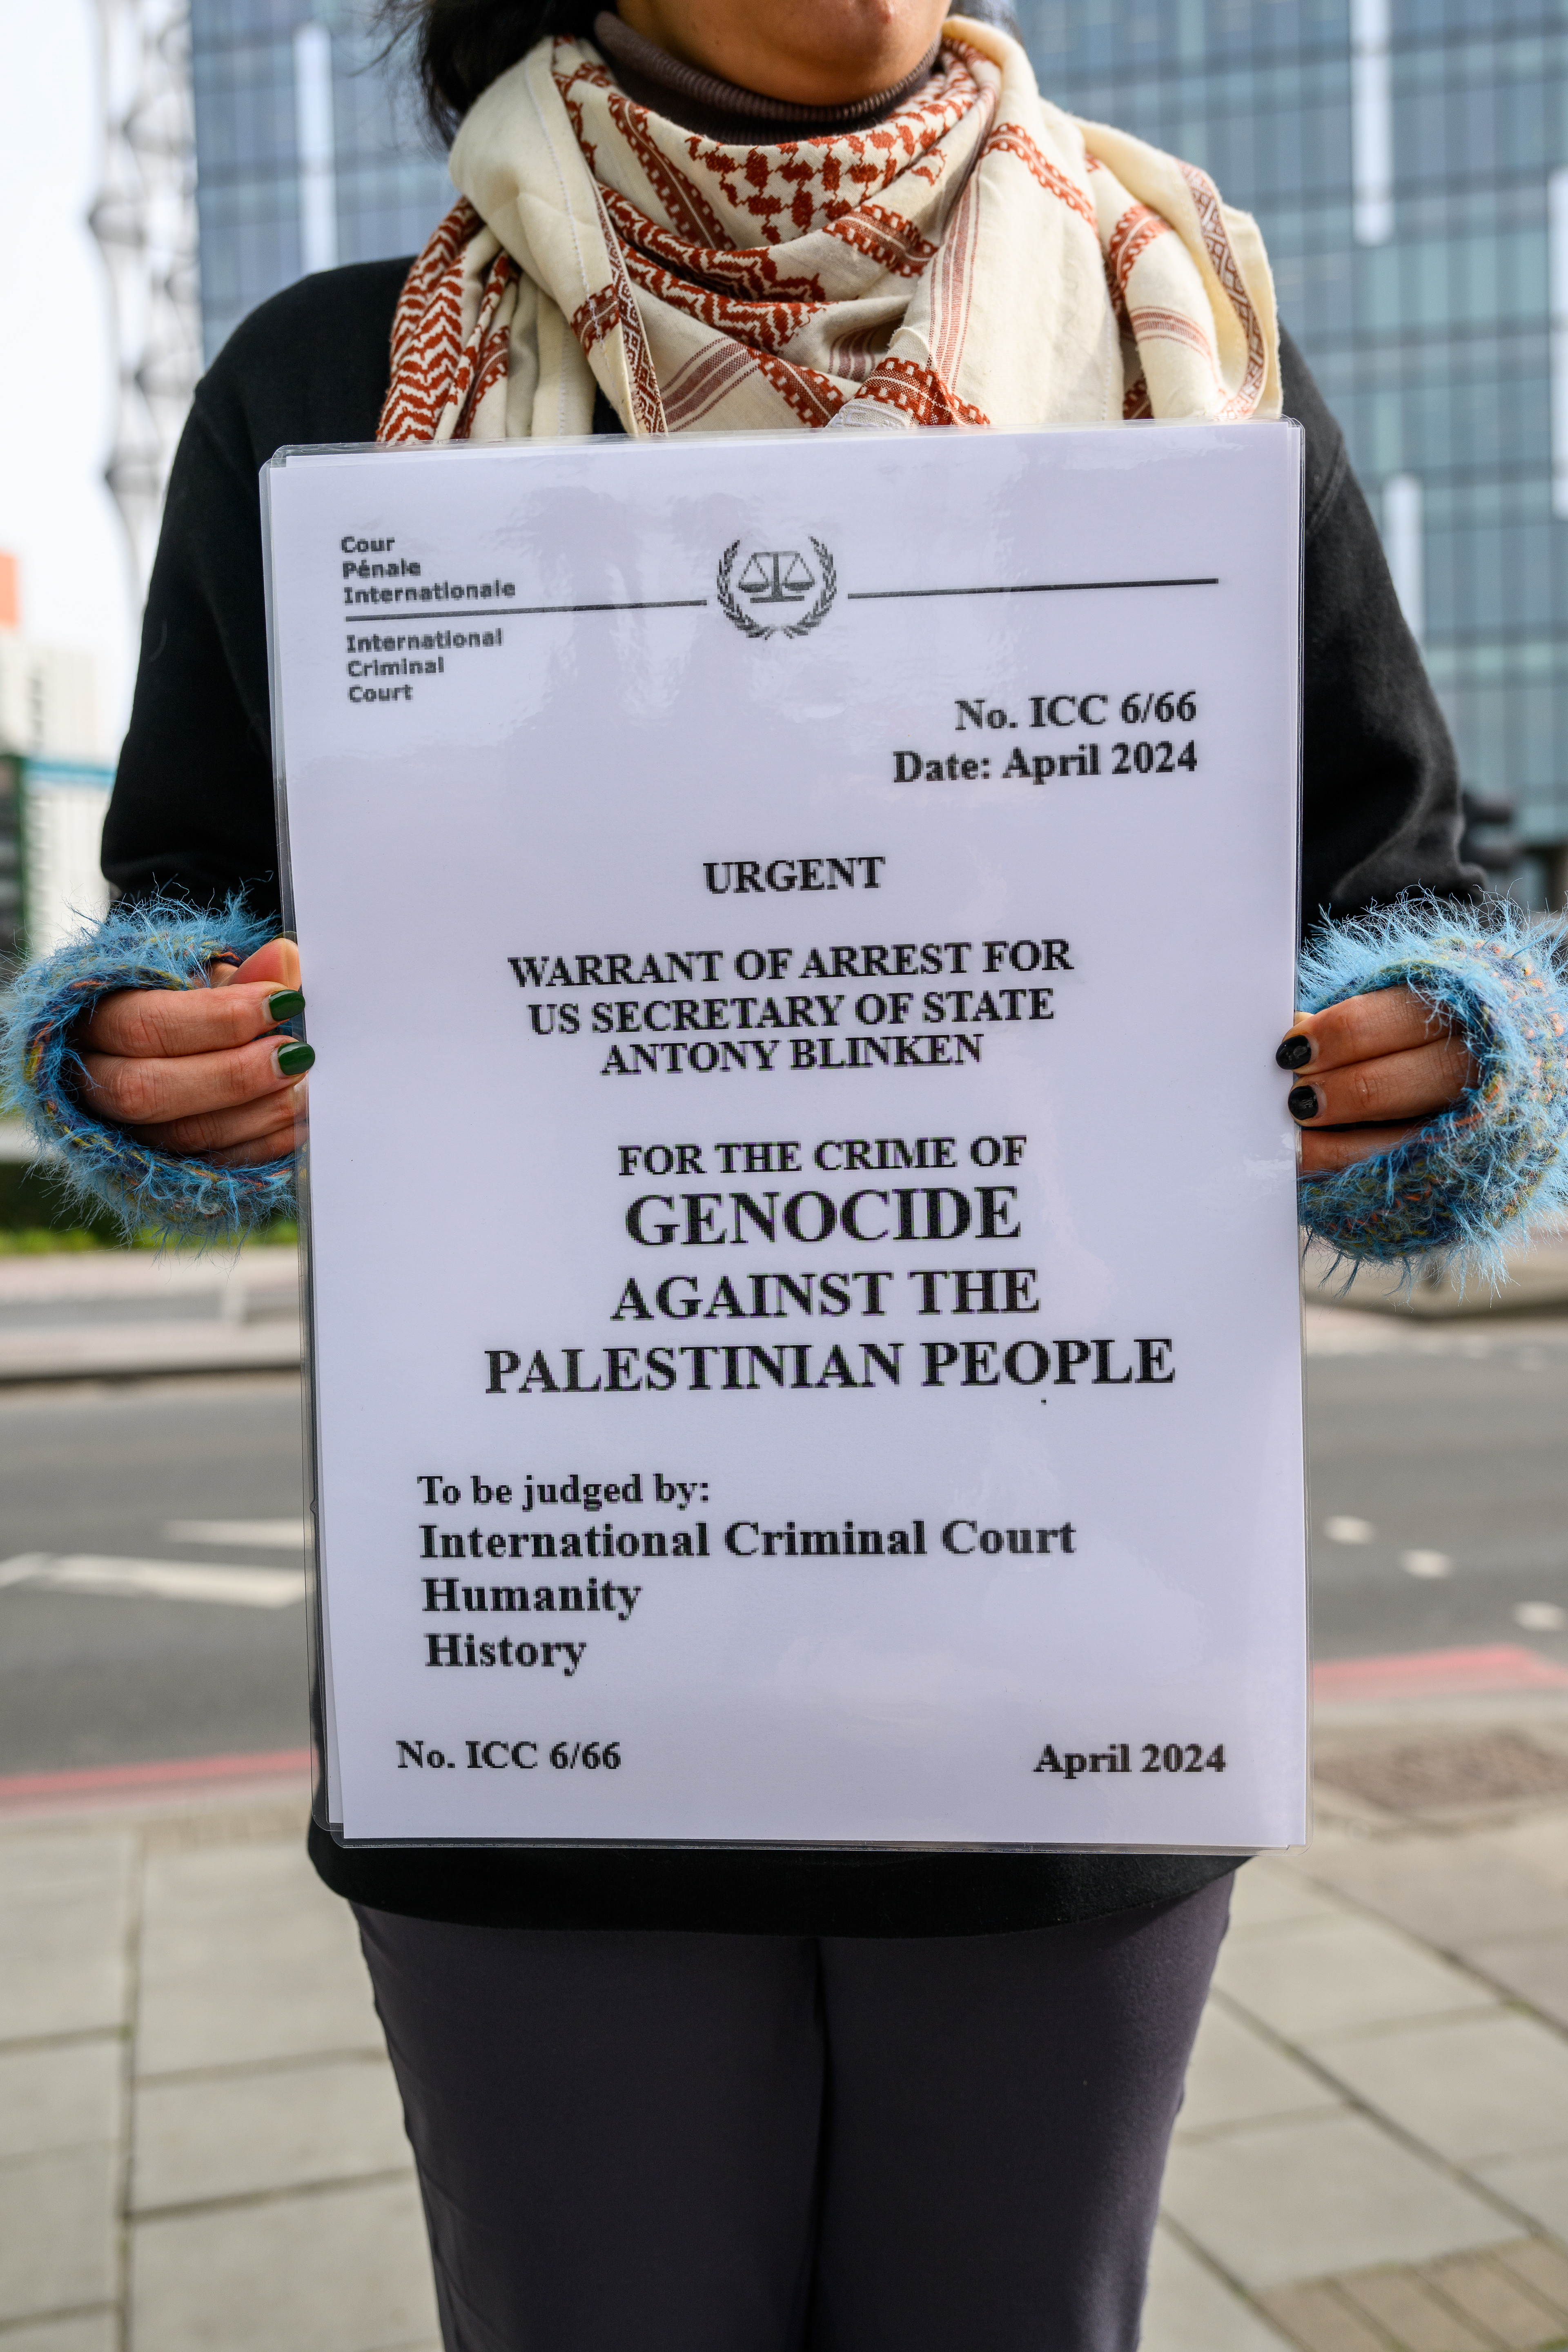 Cour
Pénale
Internationale
International
Criminal
Court
No. ICC 6/66
Date: April 2024
URGENT
WARRANT OF ARREST FOR
US SECRETARY OF STATE
ANTONY BLINKEN
FOR THE CRIME OF
GENOCIDE
AGAINST THE
PALESTINIAN PEOPLE
To be judged by:
International Criminal Court
Humanity
History
No. ICC 6/66 April 2024